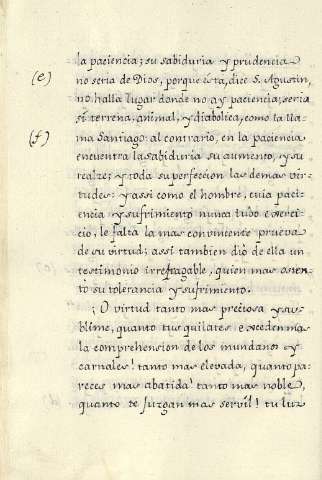 la paciencia; su sabiduria y prudencia
(e) no seria de Dios, porque esta, dice S. Agustin,
no halla lugar donde no ay paciencia; seria
si terrena, animal, y diabolica, como la lla-
(f) ma Santiago: al contrario, en la paciencia
encuentra la sabiduria su aumento, y su
realze; y toda su perfeccion las demas vir-
tudes: y assi como el hombre, cuia paci-
encia y sufrimiento nunca tubo exerci-
cio, le falta la mas convincente prueva
de su virtud; assi tambien diò de ella un
testimonio irrefragable, quien mas osten-
tò su tolerancia y sufrimiento.
¡O virtud tanto mas preciosa y su-
blime, quanto tus quilates exceden mas
la comprehension de los mundanos y
carnales! tanto mas elevada, quanto pa-
reces mas abatida! tanto mas noble,
quanto te juzgan mas servil! tu luz